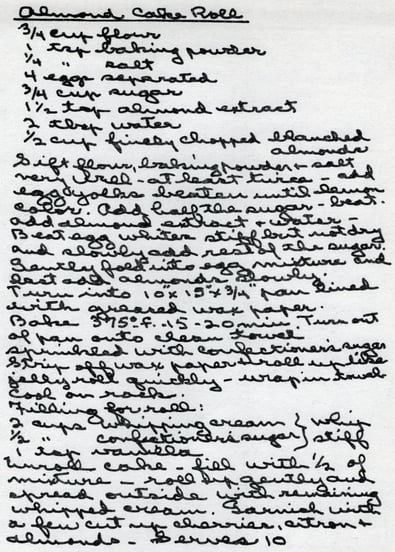 Almond Cake Roll
3/4 cup flour
1 tsp baking powder
1/4 " salt
4 eggs separated
3/4 cup sugar
1 1/2 tsp almond extract
2 tbsp water
1/2 cup finely chopped blanched
almonds
Sift flour, baking powder, + salt
very well - at least twice - add
egg yolks beaten until lemon
color. Add half the sugar - beat.
add almond extract + water -
Beat egg whites stiff but not dry
and slowly add rest of the sugar.
Gently fold into egg mixture and
last add almonds slowly.
Turn into 10" x 15" x 3/4" pan lined
with greased wax paper.
Bake 375° F. 15-20 min. Turn out
of pan onto clean towel
sprinkled with confectioner's sugar
Strip off wax paper + roll up like
jelly roll quickly - wrap in towel
Cool on rack.
Filling for roll:
2 cups whipping cream } whip
1/2 " confectioner's sugar } stiff
1 tsp vanilla
Unroll cake - fill with 1/2 of
mixture - roll up gently and
spread outside with remaining
whipped cream. Garnish with
a few cut up cherries, citron +
almonds - Serves 10